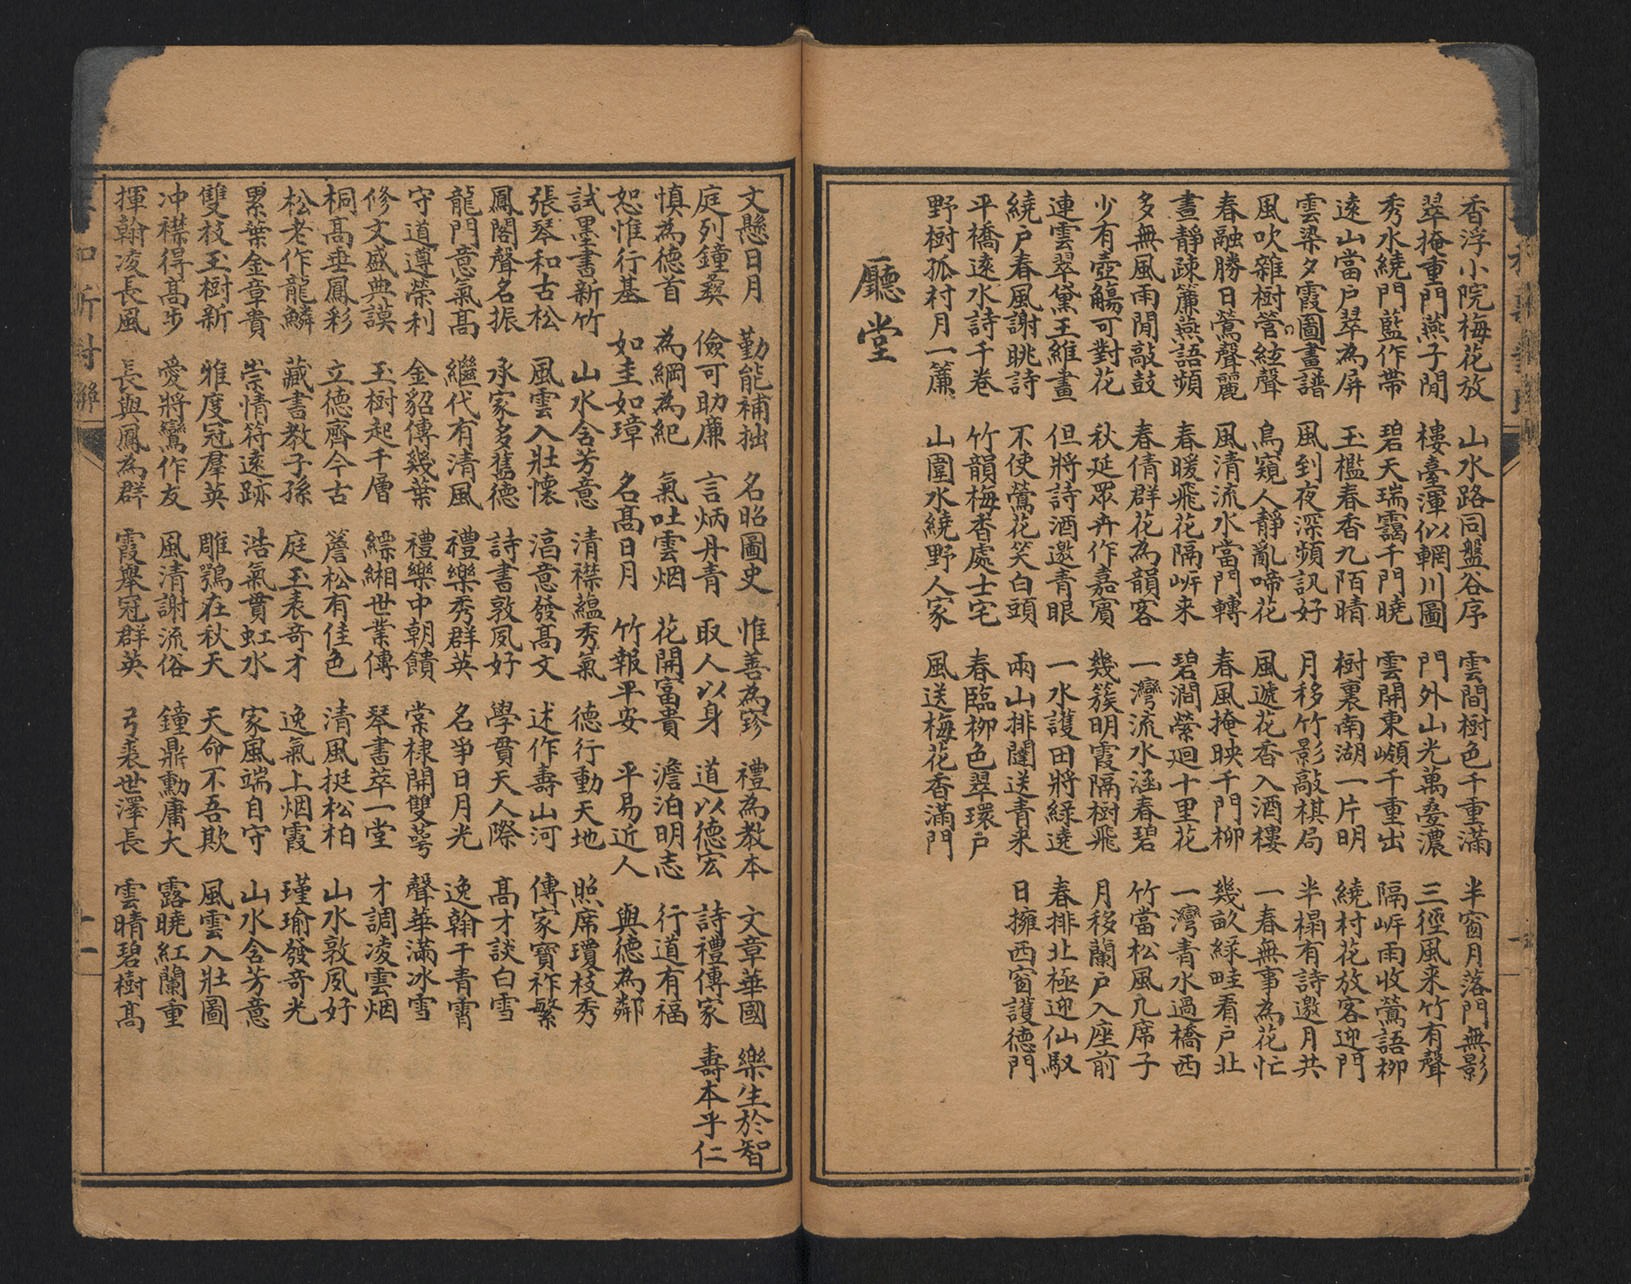 香浮小院梅花放 山水路同盤谷序 雲間樹色千重滿 半窗月落門無影
翠掩重門燕子閒 樓臺渾似輞川圖 門外山光萬疊濃 三徑風来竹有聲
秀水繞門藍作帶 碧天瑞靄千門曉 雲開東嶽千重出 隔岍雨收鶯語柳
遠山當戶翠為屏 玉檻春香九陌晴 樹裏南湖一片明 繞村花放客迎門
雲染夕霞圖畫譜 風到夜深頻訊好 月移竹影敲棋局 半榻有詩邀月共
風吹雜樹管絃聲 鳥窺人靜亂啼花 風遞花香入酒樓 一春無事為花忙
春融勝日鶯聲麗 風清流水當門轉 春風掩映千門柳 幾畝綠畦看戶北
晝靜踈簾燕語頻 春暖飛花隔岍来 碧澗縈迴十里花 一灣青水過橋西
多無風雨閒敲鼓 春倩群花為韻客 一灣流水涵春碧 竹當松風几席子
少有壺觴可對花 秋延眾卉作嘉賓 幾簇明霞隔樹飛 月移蘭戶入座前
連雲翠黛王維畫 但將詩酒邀青眼 一水護田將綠遶 春排北極迎仙馭
繞戶春風謝眺詩 不使鶯花笑白頭 兩山排闥送青来 日擁西窗護德門
平橋遠水詩千卷 竹韻梅香處士宅 春臨柳色翠環戶
野樹孤村月一簾 山圍水繞野人家 風送梅花香滿門
廳堂
文懸日月 勤能補拙 名昭圖史 惟善為寶 禮為教本 文章華國 樂生於智
庭列鐘彜 儉可助廉 言炳丹青 取人以身 道以德宏 詩禮傳家 壽本乎仁
慎為德首 為綱為紀 氣吐雲烟 花開富貴 澹泊明志 行道有福
恕惟行基 如圭如璋 名髙日月 竹報平安 平易近人 與德為鄰
試墨書新竹 山水含芳意 清襟緼秀氣 德行動天地 照席瓊枝秀
張琴和古松 風雲入壯懷 滈意發髙文 述作壽山河 傳家寶祚繁
鳳閣聲名振 承家多舊德 詩書敦夙好 學貫天人際 髙才談白雪
龍門意氣髙 繼代有清風 禮樂秀群英 名爭日月光 逸翰干青霄
守道遵榮利 金貂傳幾葉 禮樂中朝饋 棠棣開雙萼 聲華滿冰雪
修文盛典謨 玉樹起千層 縹緗世業傳 琴書萃一堂 才調凌雲烟
桐髙垂鳳彩 立德齊今古 簷松有佳色 清風挺松柏 山水敦夙好
松老作龍鱗 藏書教子孫 庭玉表奇才 逸氣上烟霞 瑾瑜發奇光
累葉金章貴 崇情符遠跡 浩氣貫虹水 家風端自守 山水含芳意
雙枝玉樹新 雅度冠羣英 雕鶚在秋天 天命不吾欺 風雲入壯圖
冲襟得髙步 愛將鸞作友 風清謝流俗 鐘鼎勳庸大 露曉紅蘭重
揮翰凌長風 長與鳳為群 霞舉冠群英 弓裘世澤長 雲晴碧樹髙
十一